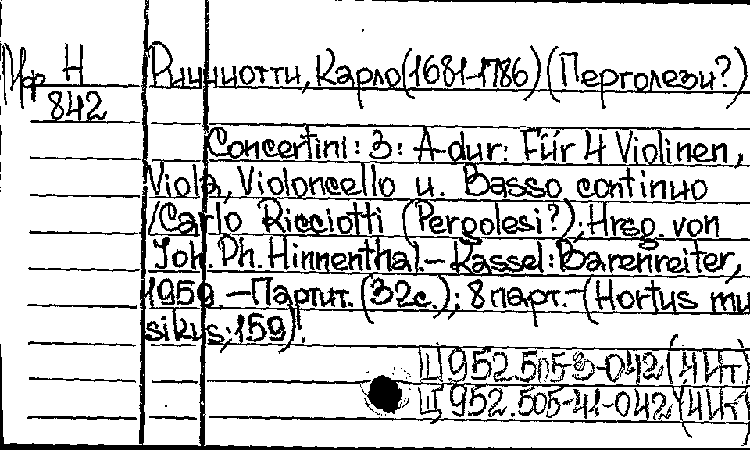 Иф Н Риччиотти, Карло (1681-1786) (Перголези?)
842
Concertini: 3: A-dur: Für 4 Violinen,
Viola, Violoncello u. Basso continuo
/Carlo Ricciotti (Pergolesi?); Hrsg. von
Joh. Ph. Hinnenthal.-Kassel: Bärenreiter,
1959.-Партит. (32с.); 8 парт.-(Hortus mu
sikus; 159)
Ц 952.505-3-042 (4Ит)
Ц 952.505-41-042 (4Ит)